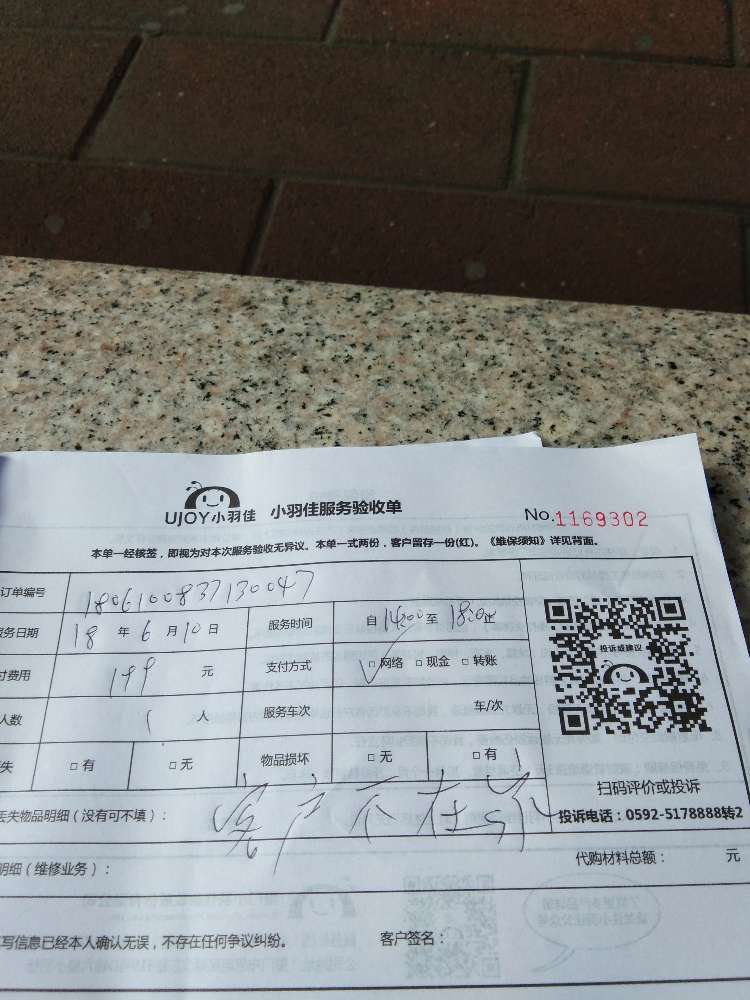 UJOY小羽佳 小羽佳服务验收单 No.1169302
本单一经核签，即视为对本次服务验收无异议。本单一式两份，客户留存一份(红)。《维保须知》详见背面。
订单编号 180610083713004７
务日期 18 年 6 月 10 日 服务时间 自 14:00 至 18:00 止
付费用 199 元 支付方式 □ 网络 □ 现金 □ 转账
人数 1 人 服务车次 车/次
失 □ 有 □ 无 物品损坏 □ 无 □ 有
投诉或建议
扫码评价或投诉
投诉电话：0592-5178888转2
丢失物品明细（没有可不填）： 客户不在家
明细（维修业务）： 代购材料总额： 元
写信息已经本人确认无误，不存在任何争议纠纷。 客户签名：